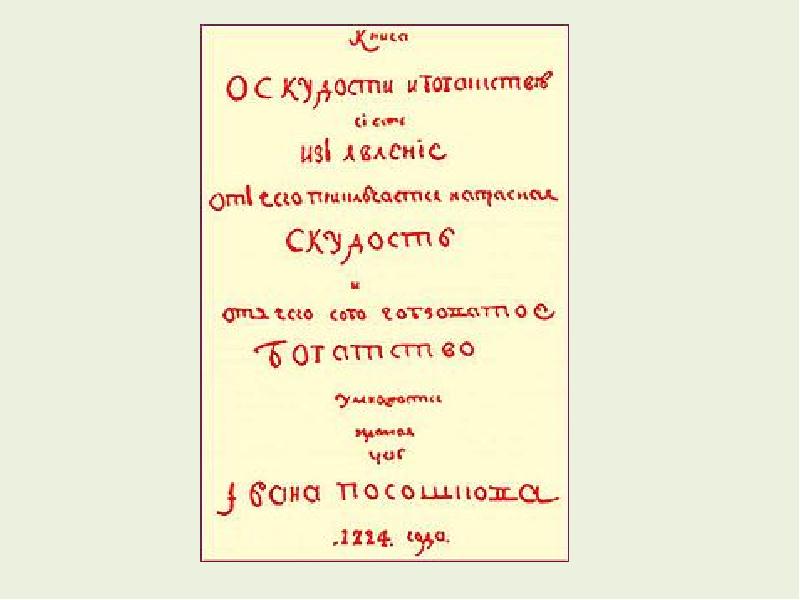 Книга
О СКУДОСТИ и БОГАТСТВѢ
сі есть
изъявленіе
отъ чего приключается напрасная
СКУДОСТЬ
и
отъ чего гобзовитое
БОГАТСТВО
умножается
Ивана Посошкова
1724. года.